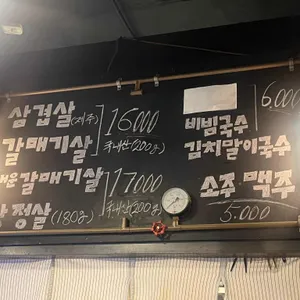 삼겹살(제주) 16000
갈매기살 국내산(200g)
매운갈매기살 17000
항정살(180g) 국내산(200g)
6.000
비빔국수
김치말이국수
소주 맥주
5.000